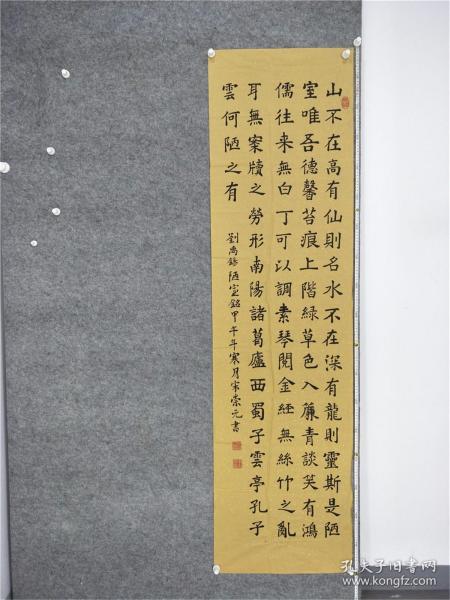 山不在高有仙則名水不在深有龍則靈斯是陋
室唯吾德馨苔痕上階綠草色入簾青談笑有鴻
儒往来無白丁可以調素琴閱金經無絲竹之亂
耳無案牘之勞形南陽諸葛廬西蜀子雲亭孔子
雲何陋之有
劉禹錫陋室銘甲午年寒月宋崇元書
孔夫子旧书网
www.kongfz.com